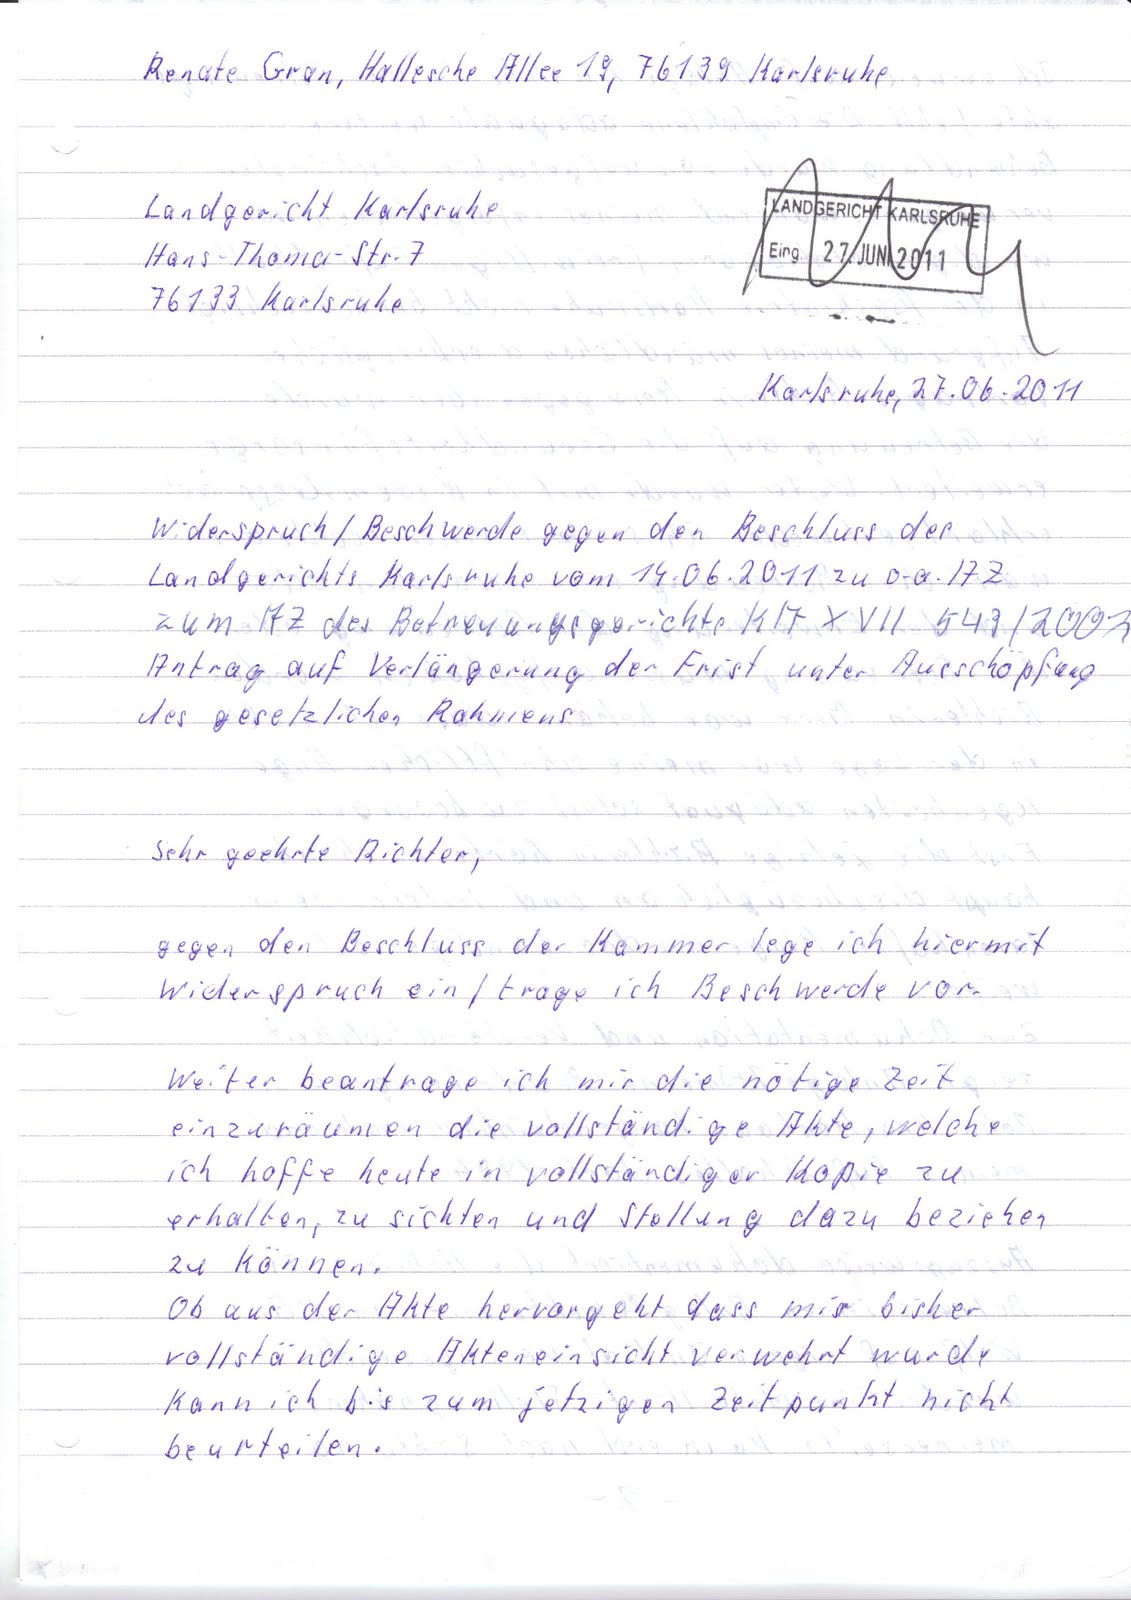 Renate Gran, Hallesche Allee 19, 76139 Karlsruhe
Landgericht Karlsruhe
Hans-Thoma-Str. 7
76133 Karlsruhe
LANDGERICHT KARLSRUHE
Eing. 27. JUNI 2011
Karlsruhe, 27.06.2011
Widerspruch / Beschwerde gegen den Beschluss des
Landgerichts Karlsruhe vom 14.06.2011 zu o.a. AZ
zum AZ des Betreuungsgerichts XVII 543/2003
Antrag auf Verlängerung der Frist unter Ausschöpfung
des gesetzlichen Rahmens
Sehr geehrte Richter,
gegen den Beschluss der Kammer lege ich hiermit
Widerspruch ein / trage ich Beschwerde vor.
Weiter beantrage ich mir die nötige Zeit
einzuräumen die vollständige Akte, welche
ich hoffe heute in vollständiger Kopie zu
erhalten, zu sichten und Stellung dazu beziehen
zu können.
Ob aus der Akte hervorgeht dass mir bisher
vollständige Akteneinsicht verwehrt wurde
kann ich bis zum jetzigen Zeitpunkt nicht
beurteilen.